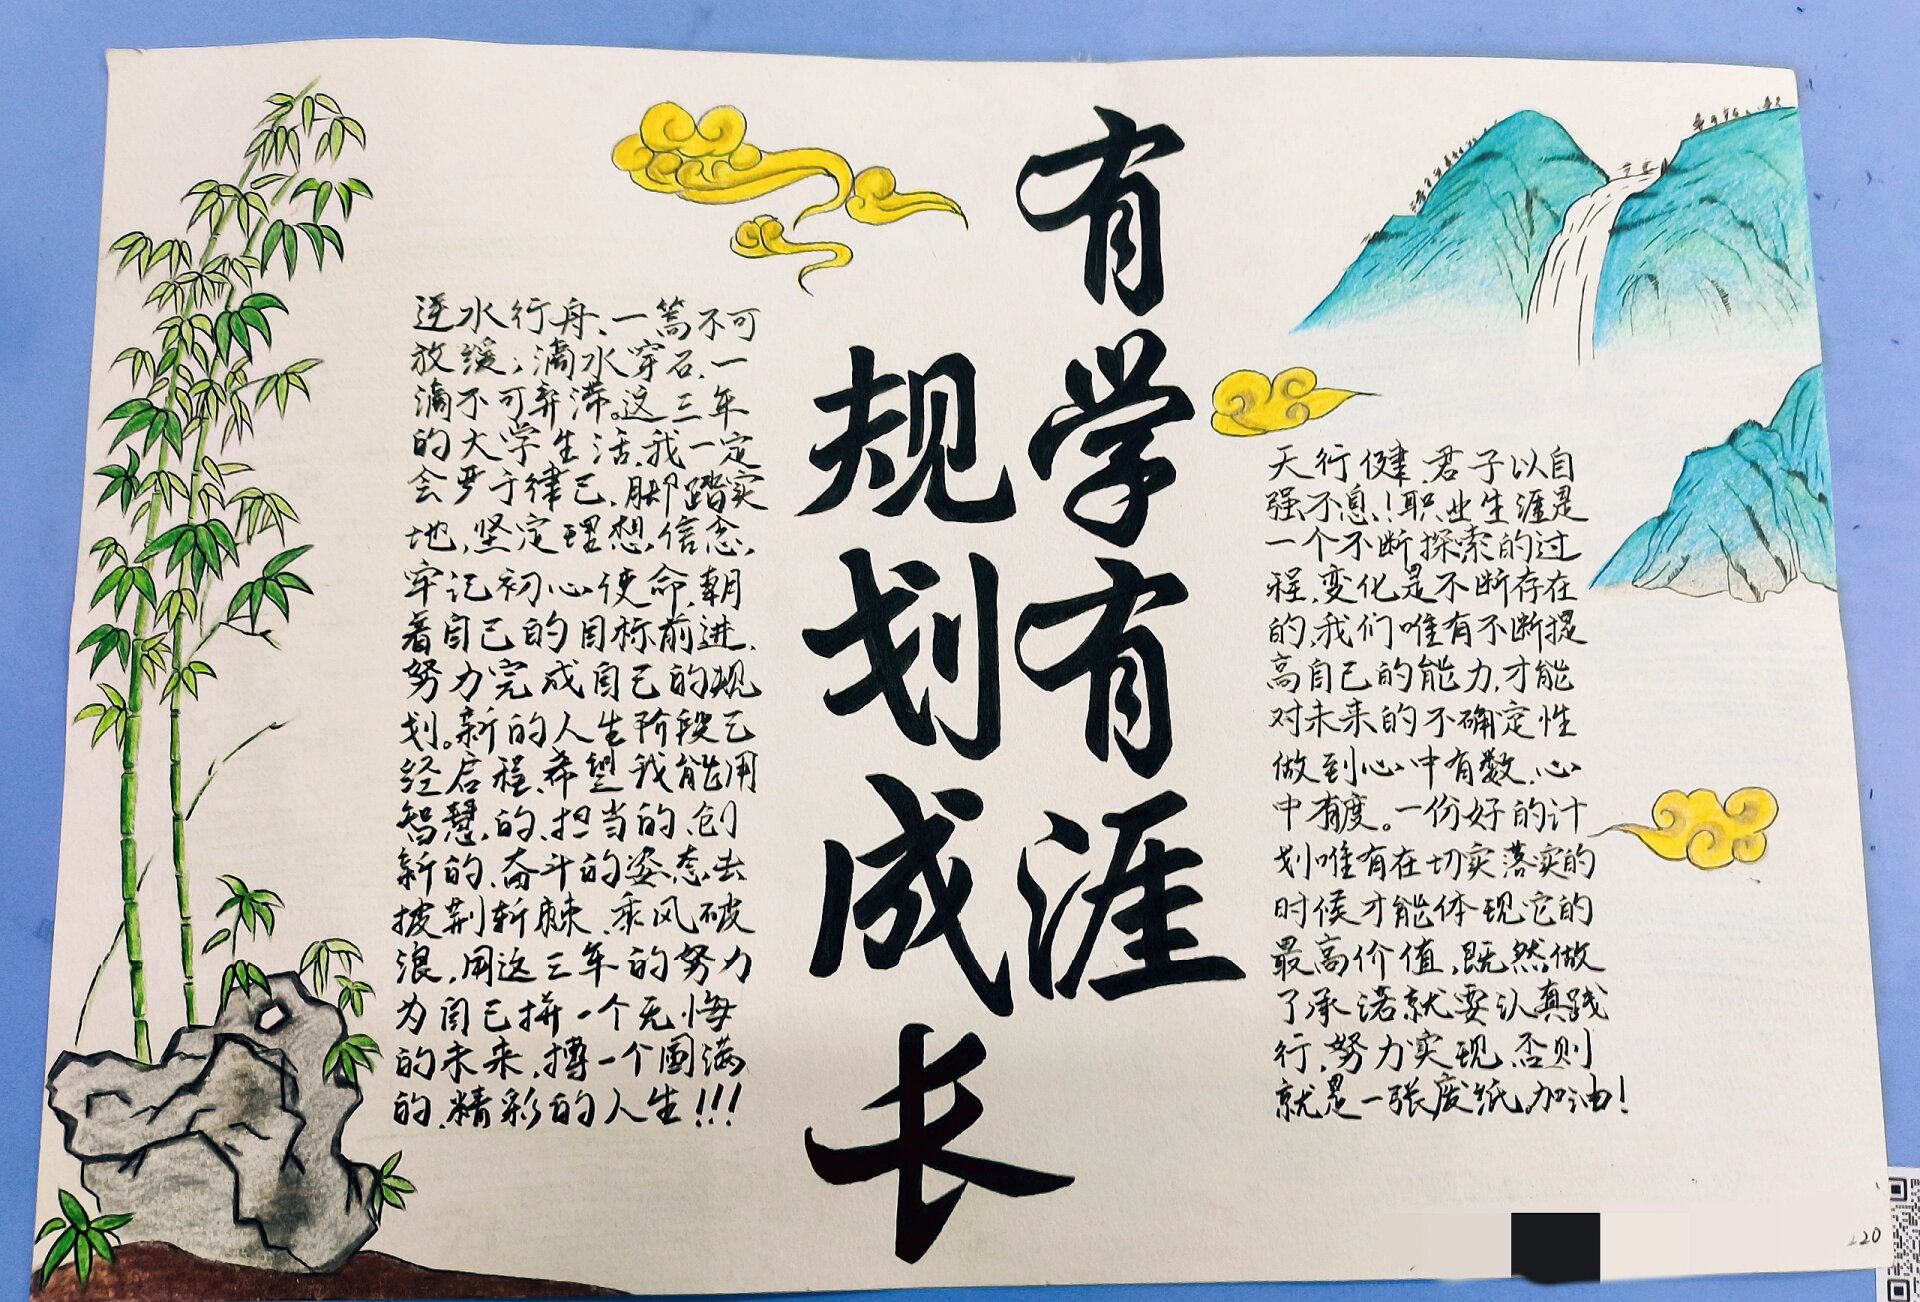 有学有涯
规划成长
逆水行舟、一篙不可
放缓;滴水穿石、一
滴不可弃滞。这三年
的大学生活,我一定
会严于律己,脚踏实
地,坚定理想,信念,
牢记初心使命,朝
着自己的目标前进,
努力完成自己的规
划。新的人生阶段已
经启程,希望我能用
智慧,的,担当的,创
新的,奋斗的姿态去
披荆斩棘,乘风破
浪,用这三年的努力
为自己拼一个无悔
的未来,搏一个圆满
的,精彩的人生!!!
天行健,君子以自
强不息!职业生涯是
一个不断探索的过
程,变化是不断存在
的,我们唯有不断提
高自己的能力,才能
对未来的不确定性
做到心中有数,心
中有度。一份好的计
划唯有在切实落实的
时候才能体现它的
最高价值,既然做
了承诺就要认真践
行,努力实现,否则
就是一张废纸。加油!
20